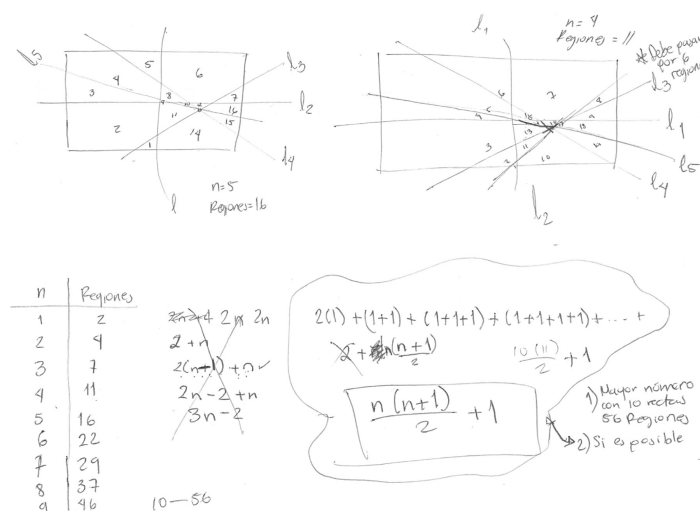 l5
5
6
l3
4
3
8
7
l2
16
11
15
2
14
1
l4
l
n=5
Regiones=16
l1
n=4
Regiones = 11
* Debe pasar
por 6
regiones
l3
7
6
l1
3
l5
11
10
l4
l2
n Regiones
1 2
2 4
3 7
4 11
5 16
6 22
7 29
8 37
9 46
10 — 56
2n 2n
2+n
2(n+1)+n ✓
2n-2+n
3n-2
2(1) + (1+1) + (1+1+1) + (1+1+1+1) + ... +
2 + n(n+1)/2
10(11)/2 + 1
n(n+1)/2 + 1
1) Mayor número
con 10 rectas
56 Regiones
2) Si es posible